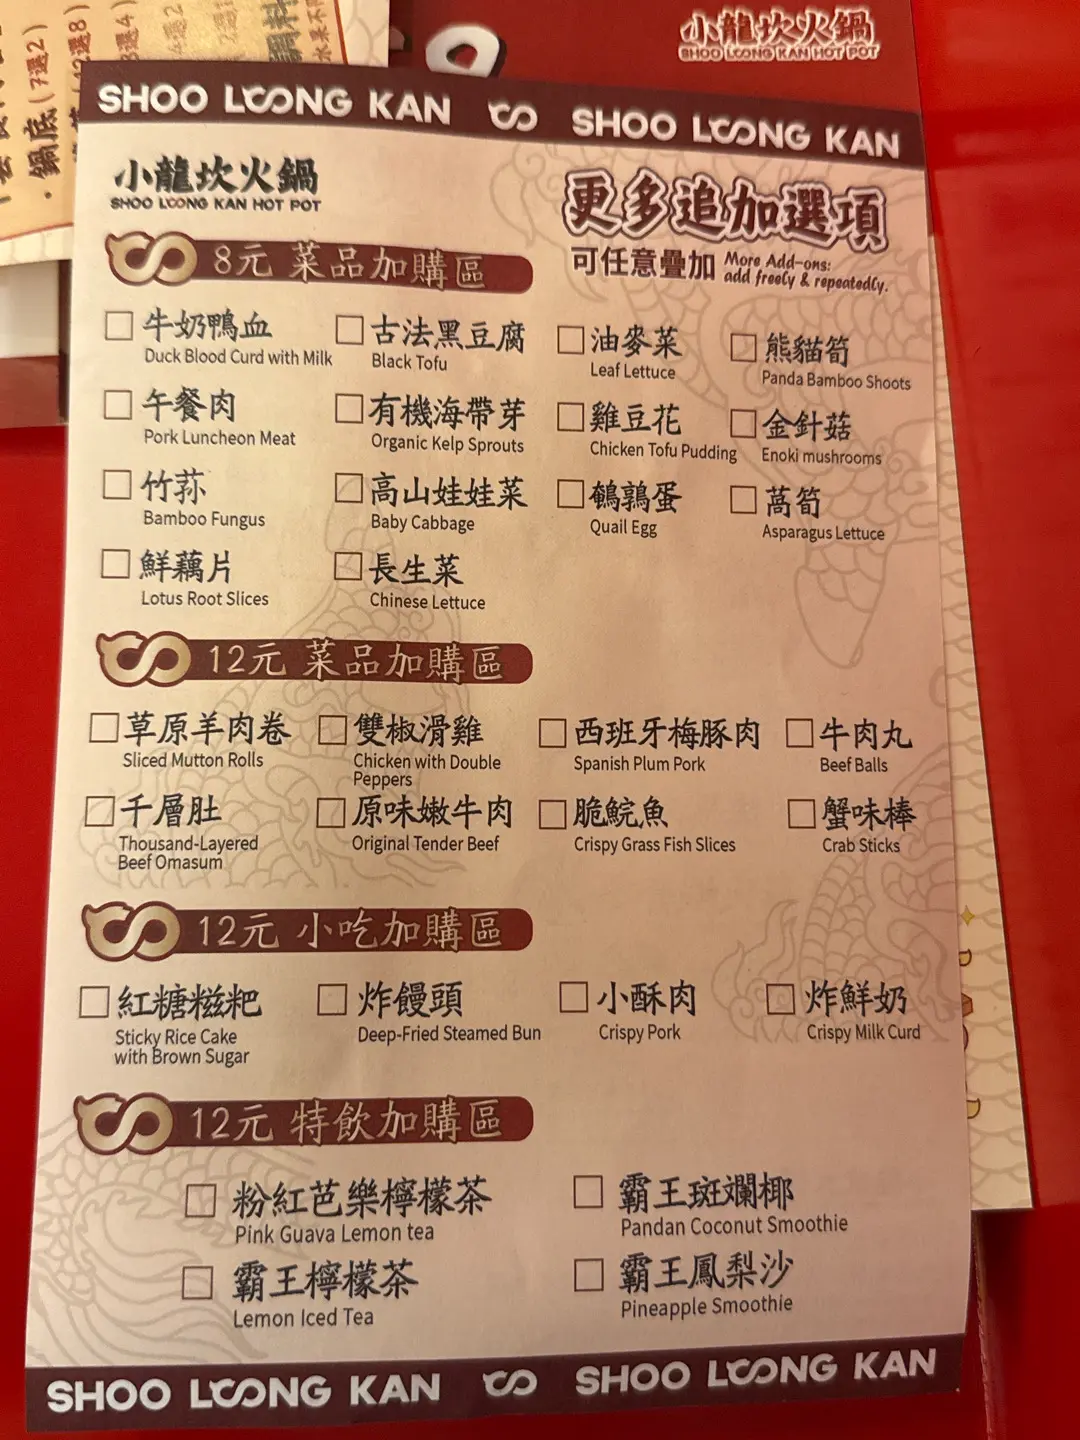 小龍坎火鍋
SHOO LOONG KAN HOT POT
鍋底(7選2)
SHOO LOONG KAN SHOO LOONG KAN
小龍坎火鍋
SHOO LOONG KAN HOT POT
更多追加選項
可任意疊加 More Add-ons:
add freely & repeatedly.
8元 菜品加購區
牛奶鴨血 古法黑豆腐 油麥菜 熊貓筍
Duck Blood Curd with Milk Black Tofu Leaf Lettuce Panda Bamboo Shoots
午餐肉 有機海帶芽 雞豆花 金針菇
Pork Luncheon Meat Organic Kelp Sprouts Chicken Tofu Pudding Enoki mushrooms
竹蓀 高山娃娃菜 鵪鶉蛋 萵筍
Bamboo Fungus Baby Cabbage Quail Egg Asparagus Lettuce
鮮藕片 長生菜
Lotus Root Slices Chinese Lettuce
12元 菜品加購區
草原羊肉卷 雙椒滑雞 西班牙梅豚肉 牛肉丸
Sliced Mutton Rolls Chicken with Double Spanish Plum Pork Beef Balls
Peppers
千層肚 原味嫩牛肉 脆鯇魚 蟹味棒
Thousand-Layered Original Tender Beef Crispy Grass Fish Slices Crab Sticks
Beef Omasum
12元 小吃加購區
紅糖糍粑 炸饅頭 小酥肉 炸鮮奶
Sticky Rice Cake Deep-Fried Steamed Bun Crispy Pork Crispy Milk Curd
with Brown Sugar
12元 特飲加購區
粉紅芭樂檸檬茶 霸王斑斕椰
Pink Guava Lemon tea Pandan Coconut Smoothie
霸王檸檬茶 霸王鳳梨沙
Lemon Iced Tea Pineapple Smoothie
SHOO LOONG KAN SHOO LOONG KAN